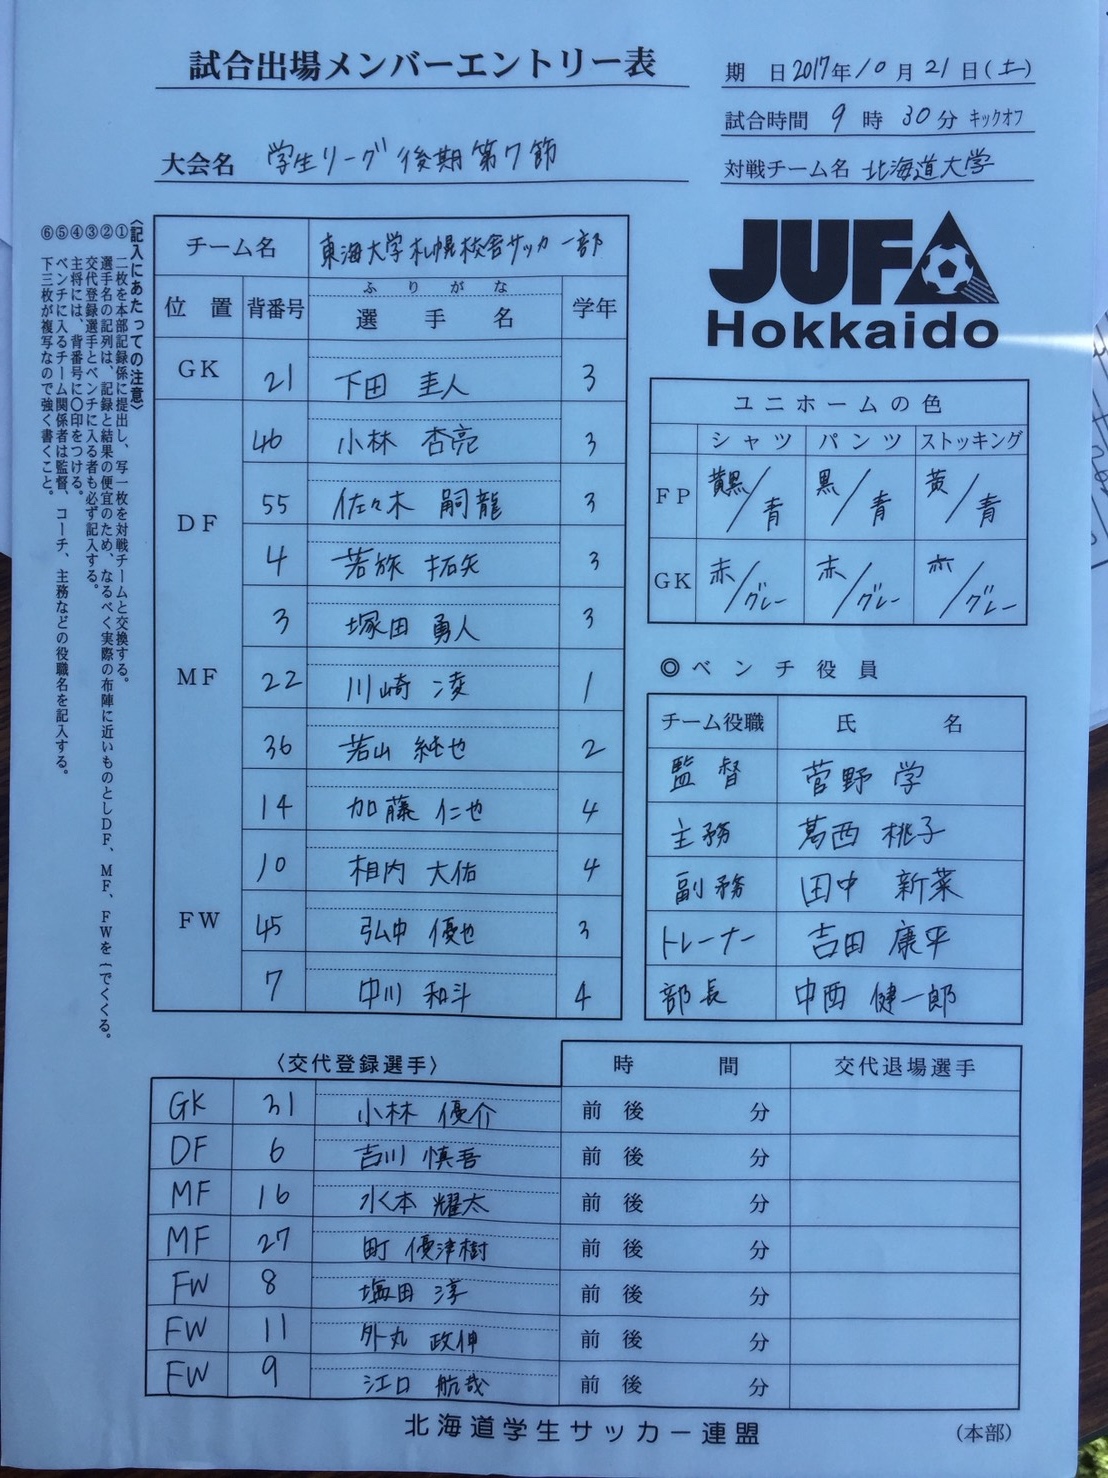 試合出場メンバーエントリー表
期 日 2017年10月21日(土)
試合時間 9時30分 キックオフ
大会名 学生リーグ後期第7節
対戦チーム名 北海道大学
JUFA
Hokkaido
〈記入にあたっての注意〉
① 二枚を本部記録係に提出し、写一枚を対戦チームと交換する。
② 選手名の記列は、記録と結果の便宜のため、なるべく実際の布陣に近いものとしDF、MF、FWを{でくくる。
③ 交代登録選手とベンチに入る者も必ず記入する。
④ 主将には、背番号に〇印をつける。
⑤ ベンチに入るチーム関係者は監督、コーチ、主務などの役職名を記入する。
⑥ 下三枚が複写なので強く書くこと。
チーム名 東海大学札幌校舎サッカー部
位置 背番号 ふりがな 選手名 学年
GK 21 下田 圭人 3
DF 46 小林 杏亮 3
55 佐々木 嗣龍 3
4 若旅 拓矢 3
3 塚田 勇人 3
MF 22 川崎 凌 1
36 若山 純也 2
14 加藤 仁也 4
10 相内 大佑 4
FW 45 弘中 優也 3
7 中川 和斗 4
ユニホームの色
シャツ パンツ ストッキング
FP 黄黒/青 黒/青 黄/青
GK 赤/グレー 赤/グレー 赤/グレー
◎ベンチ役員
チーム役職 氏名
監督 菅野 学
主務 葛西 桃子
副務 田中 新菜
トレーナー 吉田 康平
部長 中西 健一郎
〈交代登録選手〉 時間 交代退場選手
GK 31 小林 優介 前 後 分
DF 6 吉川 慎吾 前 後 分
MF 16 水本 耀太 前 後 分
MF 27 町 優津樹 前 後 分
FW 8 塩田 淳 前 後 分
FW 11 外丸 政伸 前 後 分
FW 9 江口 航哉 前 後 分
北海道学生サッカー連盟
(本部)